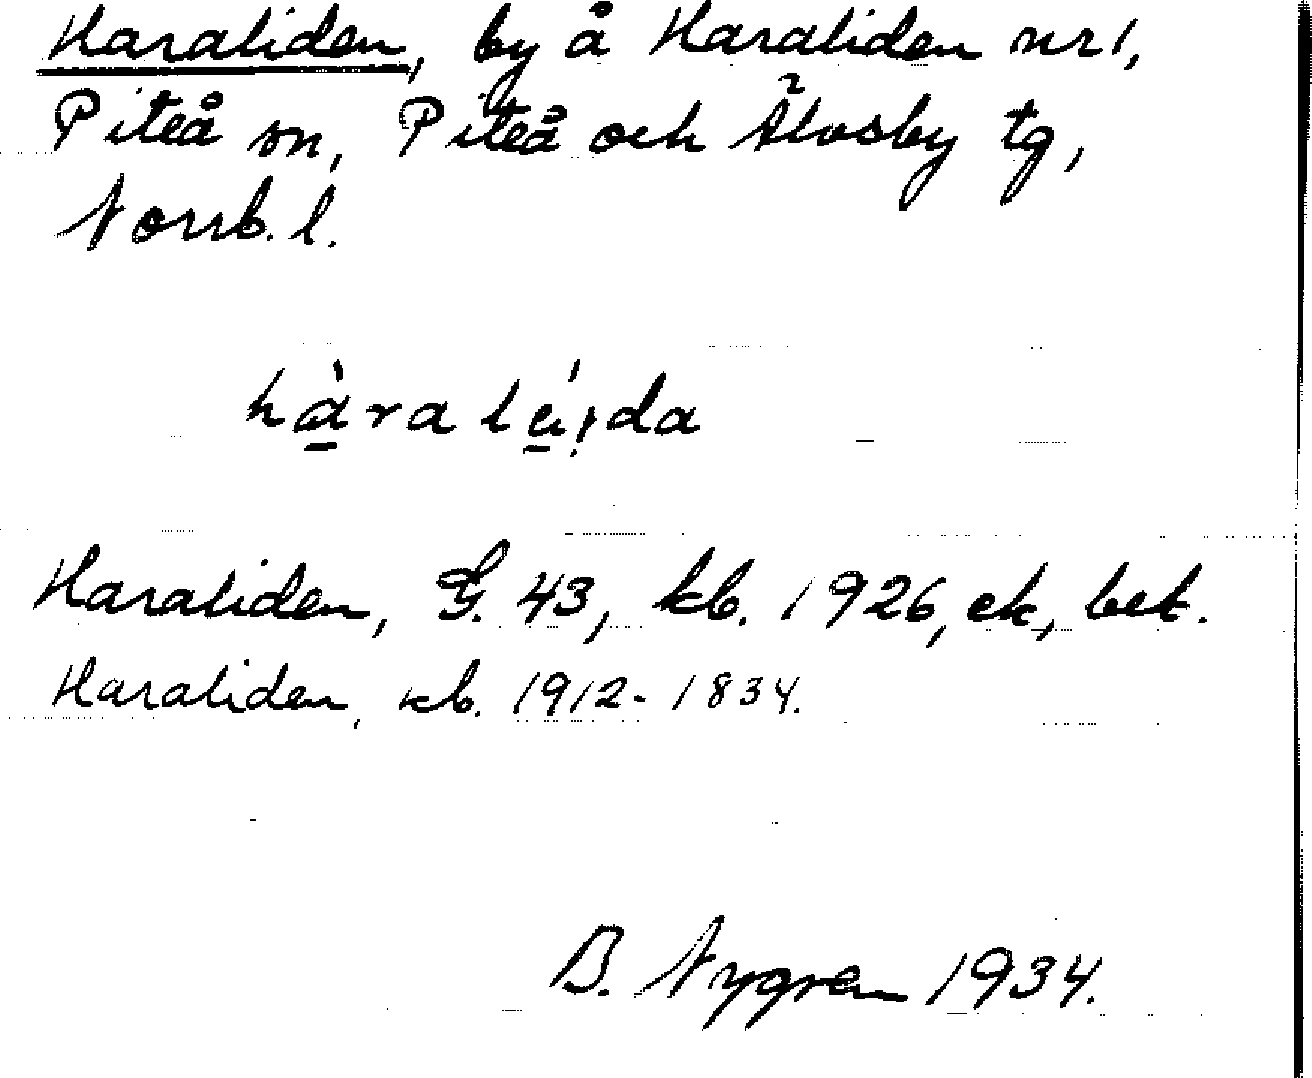 Haraliden, by å Haraliden nr 1,
Piteå sn, Piteå och Älvsby tg,
Norrb. l.
Haraliden, G. 43, kb. 1926, ek, bet.
Haraliden, kb. 1912-1834.
B. Nygren 1934.